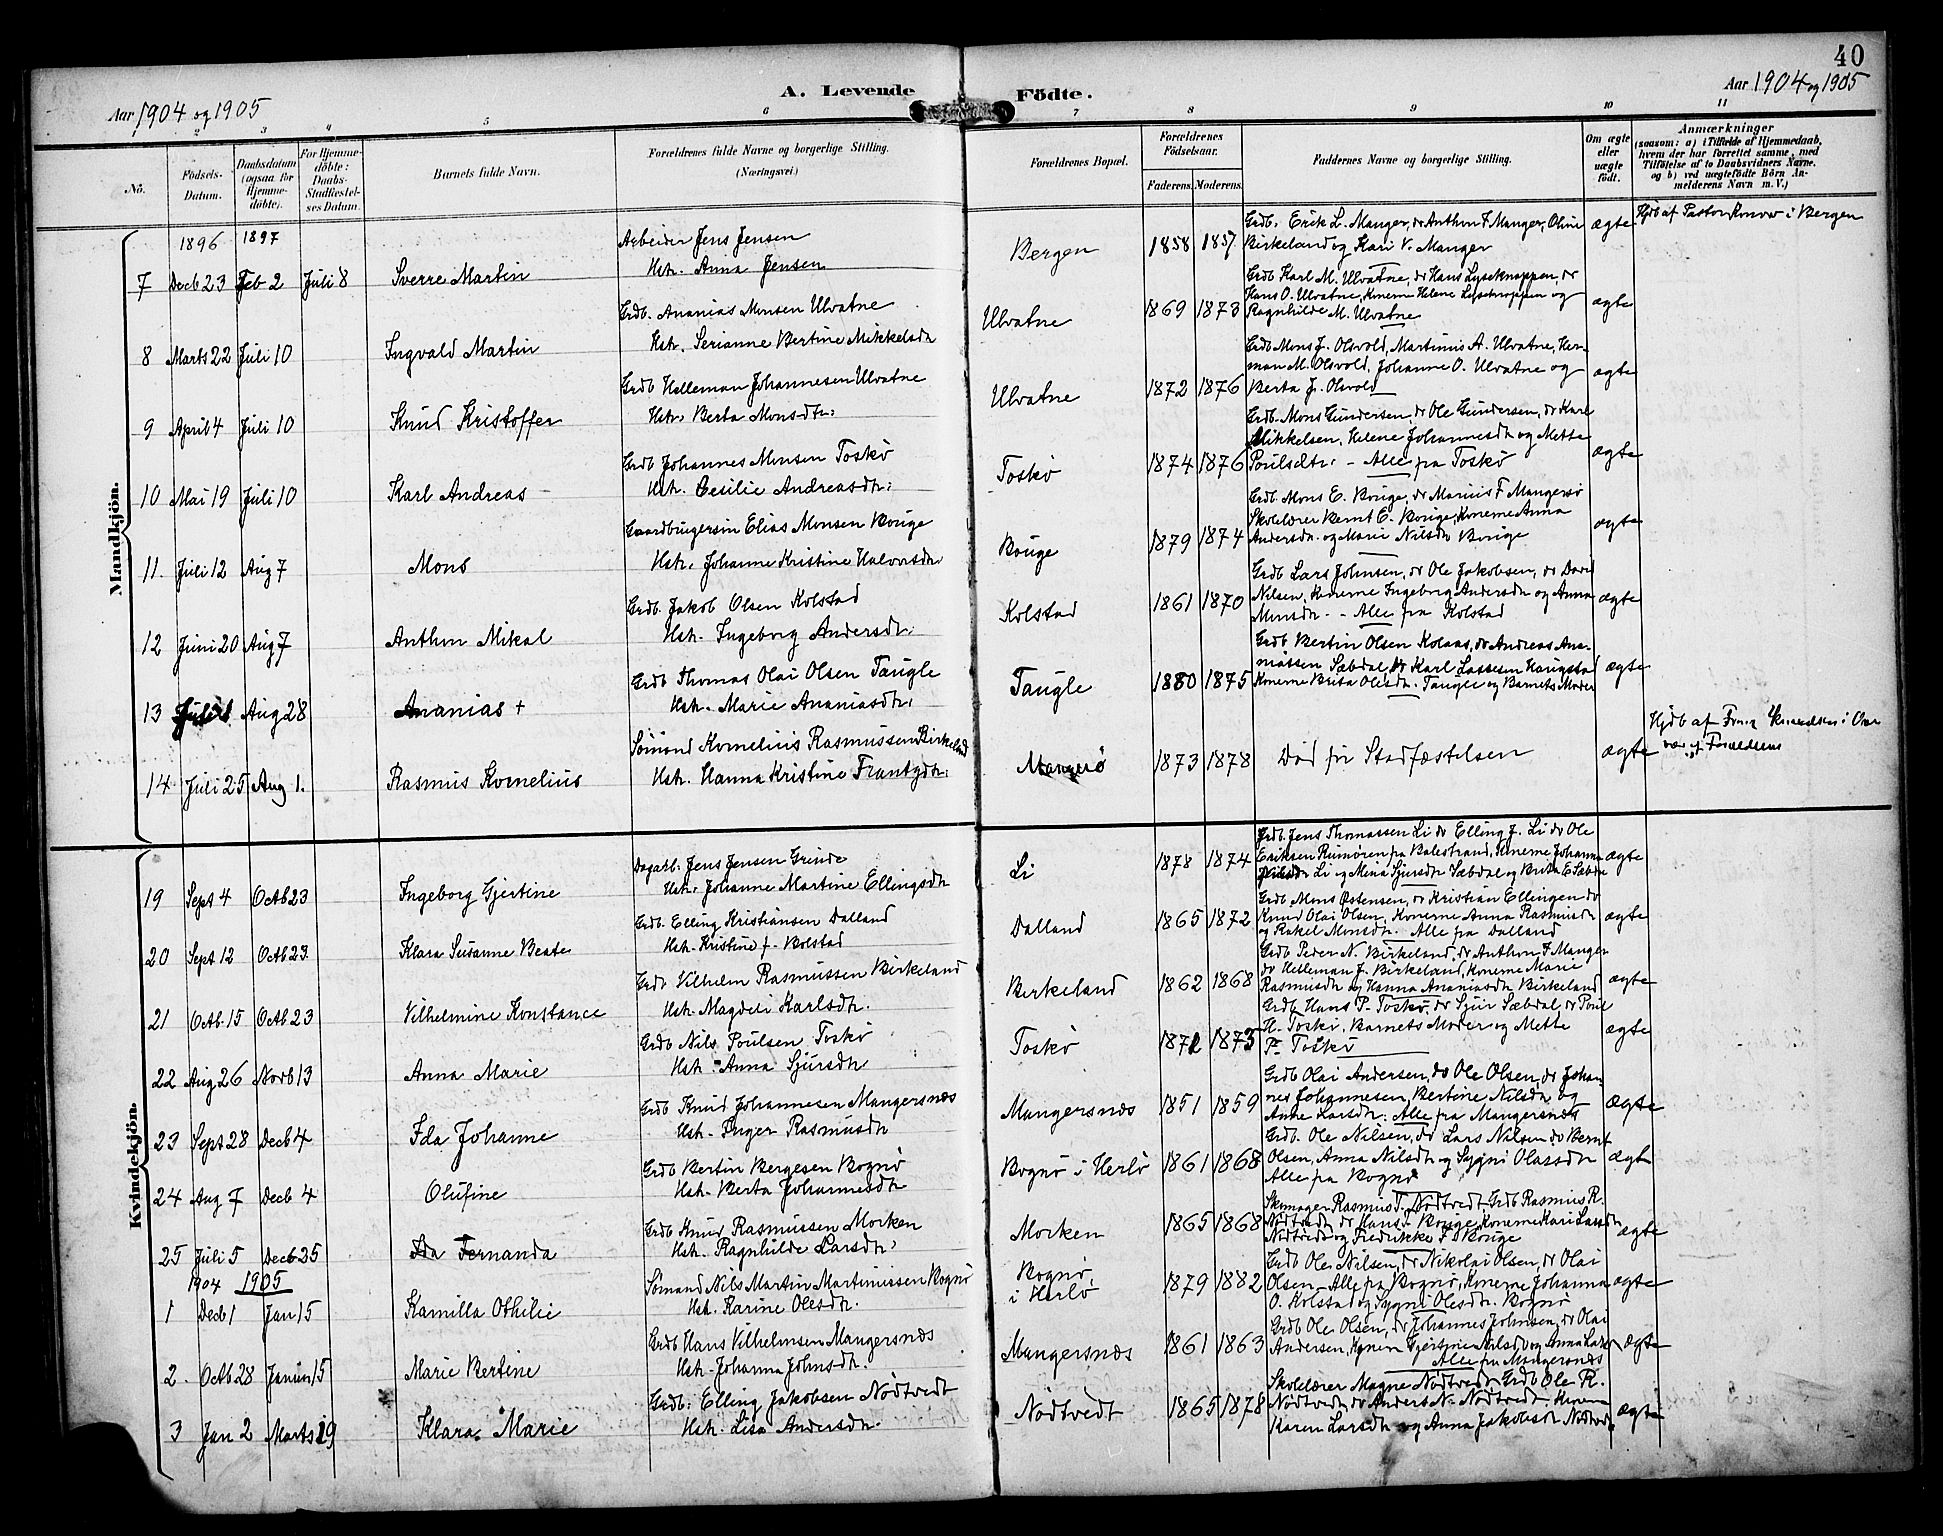 40
Aar 1904 og 1905
A. Levende Födte.
Aar 1904 og 1905
2 3 4 5 6 7 8 9 10 11
No.
Födsels-Datum.
Daabsdatum (ogsaa for Hjemme-döbte).
For Hjemme-döbte: Daabs-Stadfæstel-ses Datum.
Barnets fulde Navn.
Forældrenes fulde Navne og borgerlige Stilling.
(Næringsvei.)
Forældrenes Bopæl.
Forældrenes Födselsaar.
Faderens. Moderens.
Faddernes Navne og borgerlige Stilling.
Om ægte eller uægte födt.
Anmærkninger
(saasom: a) i Tilfælde af Hjemmedaab,
hvem der har forrettet samme, med
Tilföielse af to Daabsvidners Navne.
og b) ved uægtefödte Börn An-
melderens Navn m. V.)
Mandkjön.
1896 1897
7 Decb 23 Feb 2 Juli 8 Sverre Martin
Arbeider Jens Jensen
Hst. Anna Jensen
Bergen 1858 1857
Grdb. Erik L. Manger, do Anthon F Manger, Oline
Birkeland og Kari V. Manger
ægte
Hjdb af Pastor Ronow i Bergen
8 Marts 22 Juli 10 Ingvald Martin
Grdb. Ananias Monsen Ulvatne
Hst. Serianne Bertine Mikkelsdtr
Ulvatne 1869 1873
Grdb Karl M. Ulvatne, do Hans Lyseknappen, do
Hans O. Ulvatne, Konerne Helene Lyseknappen og
Ragnhilde M. Ulvatne
ægte
9 April 4 Juli 10 Knud Kristoffer
Grdb Helleman Johannesen Ulvatne
Hst. Berta Monsdtr.
Ulvatne 1872 1876
Grdb Mons J. Olsvold, Martinus A. Ulvatne, Her-
man M. Olsvold, Johanne O. Ulvatne og
Berta J. Olsvold
ægte
10 Mai 19 Juli 10 Karl Andreas
Grdb Johannes Monsen Toskö
Hst. Cesilie Andreasdtr.
Toskö 1874 1876
Grdb. Mons Gundersen, do Ole Gundersen, do Karl
Mikkelsen, Helene Johannesdtr og Mette
Poulsdtr. - Alle fra Toskö
ægte
11. Juli 12 Aug 7 Mons
Gaardbrugersön Elias Monsen Bouge
Hst. Johanne Kristine Halvorsdtr
Bouge 1879 1874
Grdb. Mons E. Bouge, do Marius F Mangersö
Skolelærer Bernt E. Bouge, Konerne Anna
Andersdtr. og Marie Nilsdtr Bouge
ægte
12 Juni 20 Aug 7 Anthon Mikal
Grdb. Jakob Olsen Kolstad
Hst. Ingeborg Andersdtr.
Kolstad 1861 1870
Grdb Lars Johnsen, do Ole Jakobsen, do David
Nilsen, Konerne Ingeborg Andersdtr og Anna
Monsdtr. - Alle fra Kolstad
ægte
13 Juli 1 Aug 28 Ananias +
Grdb Thomas Olai Olsen Taugle
Hst. Marie Ananiasdtr.
Taugle 1880 1875
Grdb Bertin Olsen Kolaas, do Andreas Ana-
niassen Sæbdal, do Karl Lassesen Haugstad
Konerne Brita Olesdtr. Taugle og Barnets Moder
ægte
14 Juli 25 Aug 1. Rasmus Kornelius
Sömand Kornelius Rasmussen Birkeland
Hst. Hanna Kristine Frantzdtr.
Mangersö 1873 1878
Död för Stadfæstelsen
ægte
Hjdb af
Kvindekjön.
19 Sept 4 Octb 23 Ingeborg Gjertine
Dagarb. Jens Jensen Grinde
Hst. Johanne Martine Ellingsdtr
Li 1878 1874
Grdb. Jens Thomassen Li do Elling J. Li do Ole
Eriksen Rumören fra Balestrand, Konerne Johanna
Nilsdtr Li og Mina Sjursdtr Sæbdal og Brita E Sæbdal
ægte
20 Sept 12 Octb 23 Klara Susanne Beate
Grdb. Elling Kristiansen Dalland
Hst. Kristine J. Bolstad
Dalland 1865 1872
Grdb Mons Östensen, do Kristian Ellingsen do
Knud Olai Olsen, Konerne Anna Rasmusdtr
og Rakel Monsdtr. Alle fra Dalland
ægte
21 Octb. 15 Octb 23 Vilhelmine Konstance
Grdb Vilhelm Rasmussen Birkeland
Hst. Magdeli Karlsdtr.
Birkeland 1862 1868
Grdb Peder N. Birkeland, do Anthon F Manger
do Helleman J. Birkeland, Konerne Marie
Rasmusdtr og Hanna Ananiasdtr Birkeland
ægte
22 Aug 26 Novb 13 Anna Marie
Grdb Nils Poulsen Toskö
Hst. Anna Sjursdtr
Toskö 1872 1875
Grdb Hans P. Toskö, do Sjur Sæbdal do Poul
H. Toskö, Barnets Moder og Mette
P. Toskö
ægte
23 Sept 28 Decb 4 Ida Johanne
Grdb Knud Johannesen Mangersnæs
Hst. Inger Rasmusdtr
Mangersnæs 1851 1859
Grdb Olai Andersen, do Ole Olsen, do Johan-
nes Johannesen, Bertine Nilsdtr og
Anne Larsdtr. Alle fra Mangersnæs
ægte
24 Aug 7 Decb 4 Olufine
Grdb Bertin Bergesen Bognö
Hst. Berta Johannesdtr
Bognö i Herlö 1861 1868
Grdb. Ole Nilsen, do Lars Nilsen do Bernt
Olsen, Anna Nilsdtr og Sygni Olassdtr
Alle fra Bognö
ægte
25 Juli 5 Decb 25 Ida Fernanda
Grdb Knud Rasmussen Morken
Hst. Ragnhilde Larsdtr.
Morken 1865 1868
Skomager Rasmus T. Nödtvedt, Grdb Rasmus R.
Nödtvedt, do Hans J. Bouge, Konerne Kari Larsdtr
Nödtvedt og Fredrikke F. Bouge
ægte
1904 1905
1 Decb 1 Jan 15 Kamilla Othilie
Sömand Nils Martin Martinussen Bognö
Hst. Karine Olesdtr.
Bognö,
i Herlö 1879 1882
Grdb Ole Nilsen, do Nikolai Olsen, do Olai
Olsen - Alle fra Bognö, Konerne Johanna
O. Kolstad og Sygni Olesdtr. Bognö
ægte
2 Octb 28 Januar 15 Marie Bertine
Grdb Hans Vilhelmsen Mangersnæs
Hst. Johanna Johnsdtr.
Mangersnæs 1861 1863
Grdb Ole Olsen, do Johannes Johnsen, do Olai
Andersen, Konerne Gjertine Nilsd. og Anna Larsdtr
Alle fra Mangersnæs
ægte
3 Jan 2 Marts 19 Klara Marie
Grdb. Elling Jakobsen Nödtvedt
Hst. Lisa Andersdtr.
Nödtvedt 1865 1878
Skolelærer Magne Nödtvedt, Grdb Ole R.
Nödtvedt, do Anders N. Nödtvedt. Konerne
Karen Larsdtr og Anna Jakobsdtr Nödtvedt
ægte